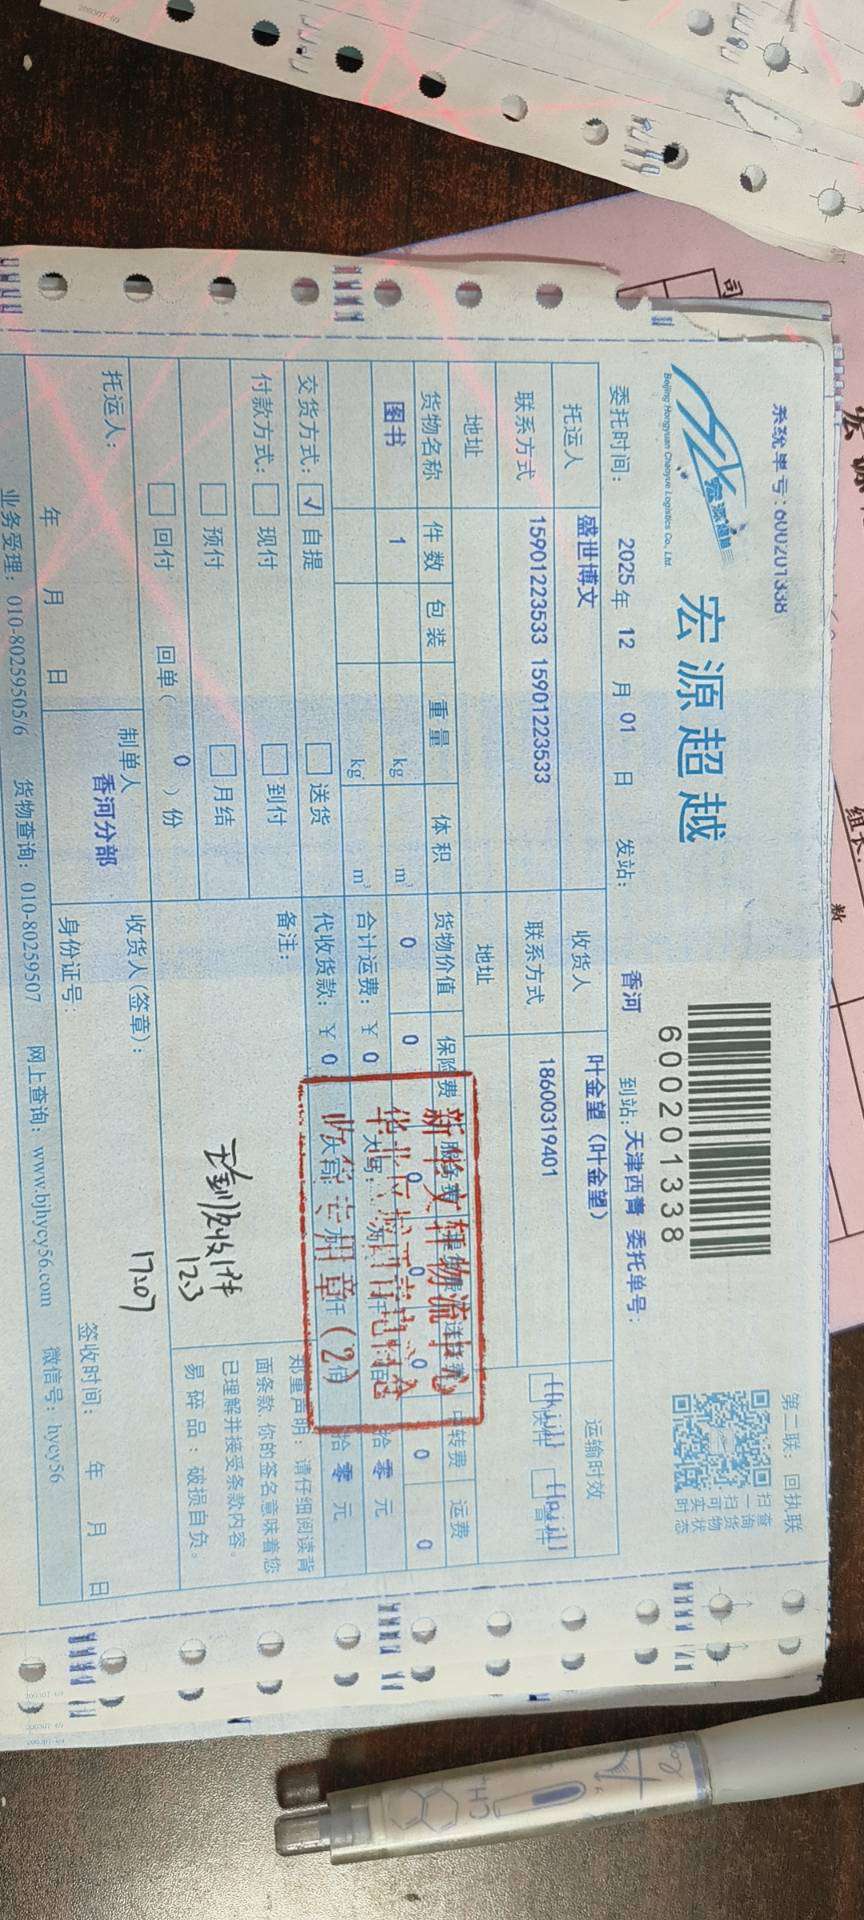 系统单号:600201338
宏源超越
Beijing Hongyuan Chaoyue Logistics Co., Ltd.
600201338
第二联：回执联
扫一扫可实时
查询货物状态
委托时间： 2025 年 12 月 01 日 发站： 香河 到站: 天津西青 委托单号:
托运人 盛世博文 收货人 叶金望 (叶金望) 运输时效
联系方式 15901223533 15901223533 联系方式 18600319401
地址 地址
货物名称 件数 包装 重量 体积 货物价值 保险费 中转费 运费
图书 1 kg m³ 0 0 0 0 0 0 0
kg m³ 合计运费：￥ 0 拾 零 元
交货方式： √ 自提 送货 代收货款：￥ 0 拾 零 元
付款方式： 现付 到付 备注：
预付 月结
回付 回单（ 0 ）份
新华文轩物流中心
收货专用章(2)
12.3
17:07
郑重声明：请仔细阅读背
面条款,你的签名意味着您
已理解并接受条款内容。
易碎品：破损自负。
托运人： 制单人 收货人(签章)：
香河分部
年 月 日 身份证号： 签收时间： 年 月 日
业务受理：010-80259505/6 货物查询：010-80259507 网上查询：www.bjhycy56.com 微信号：hycy56
CH